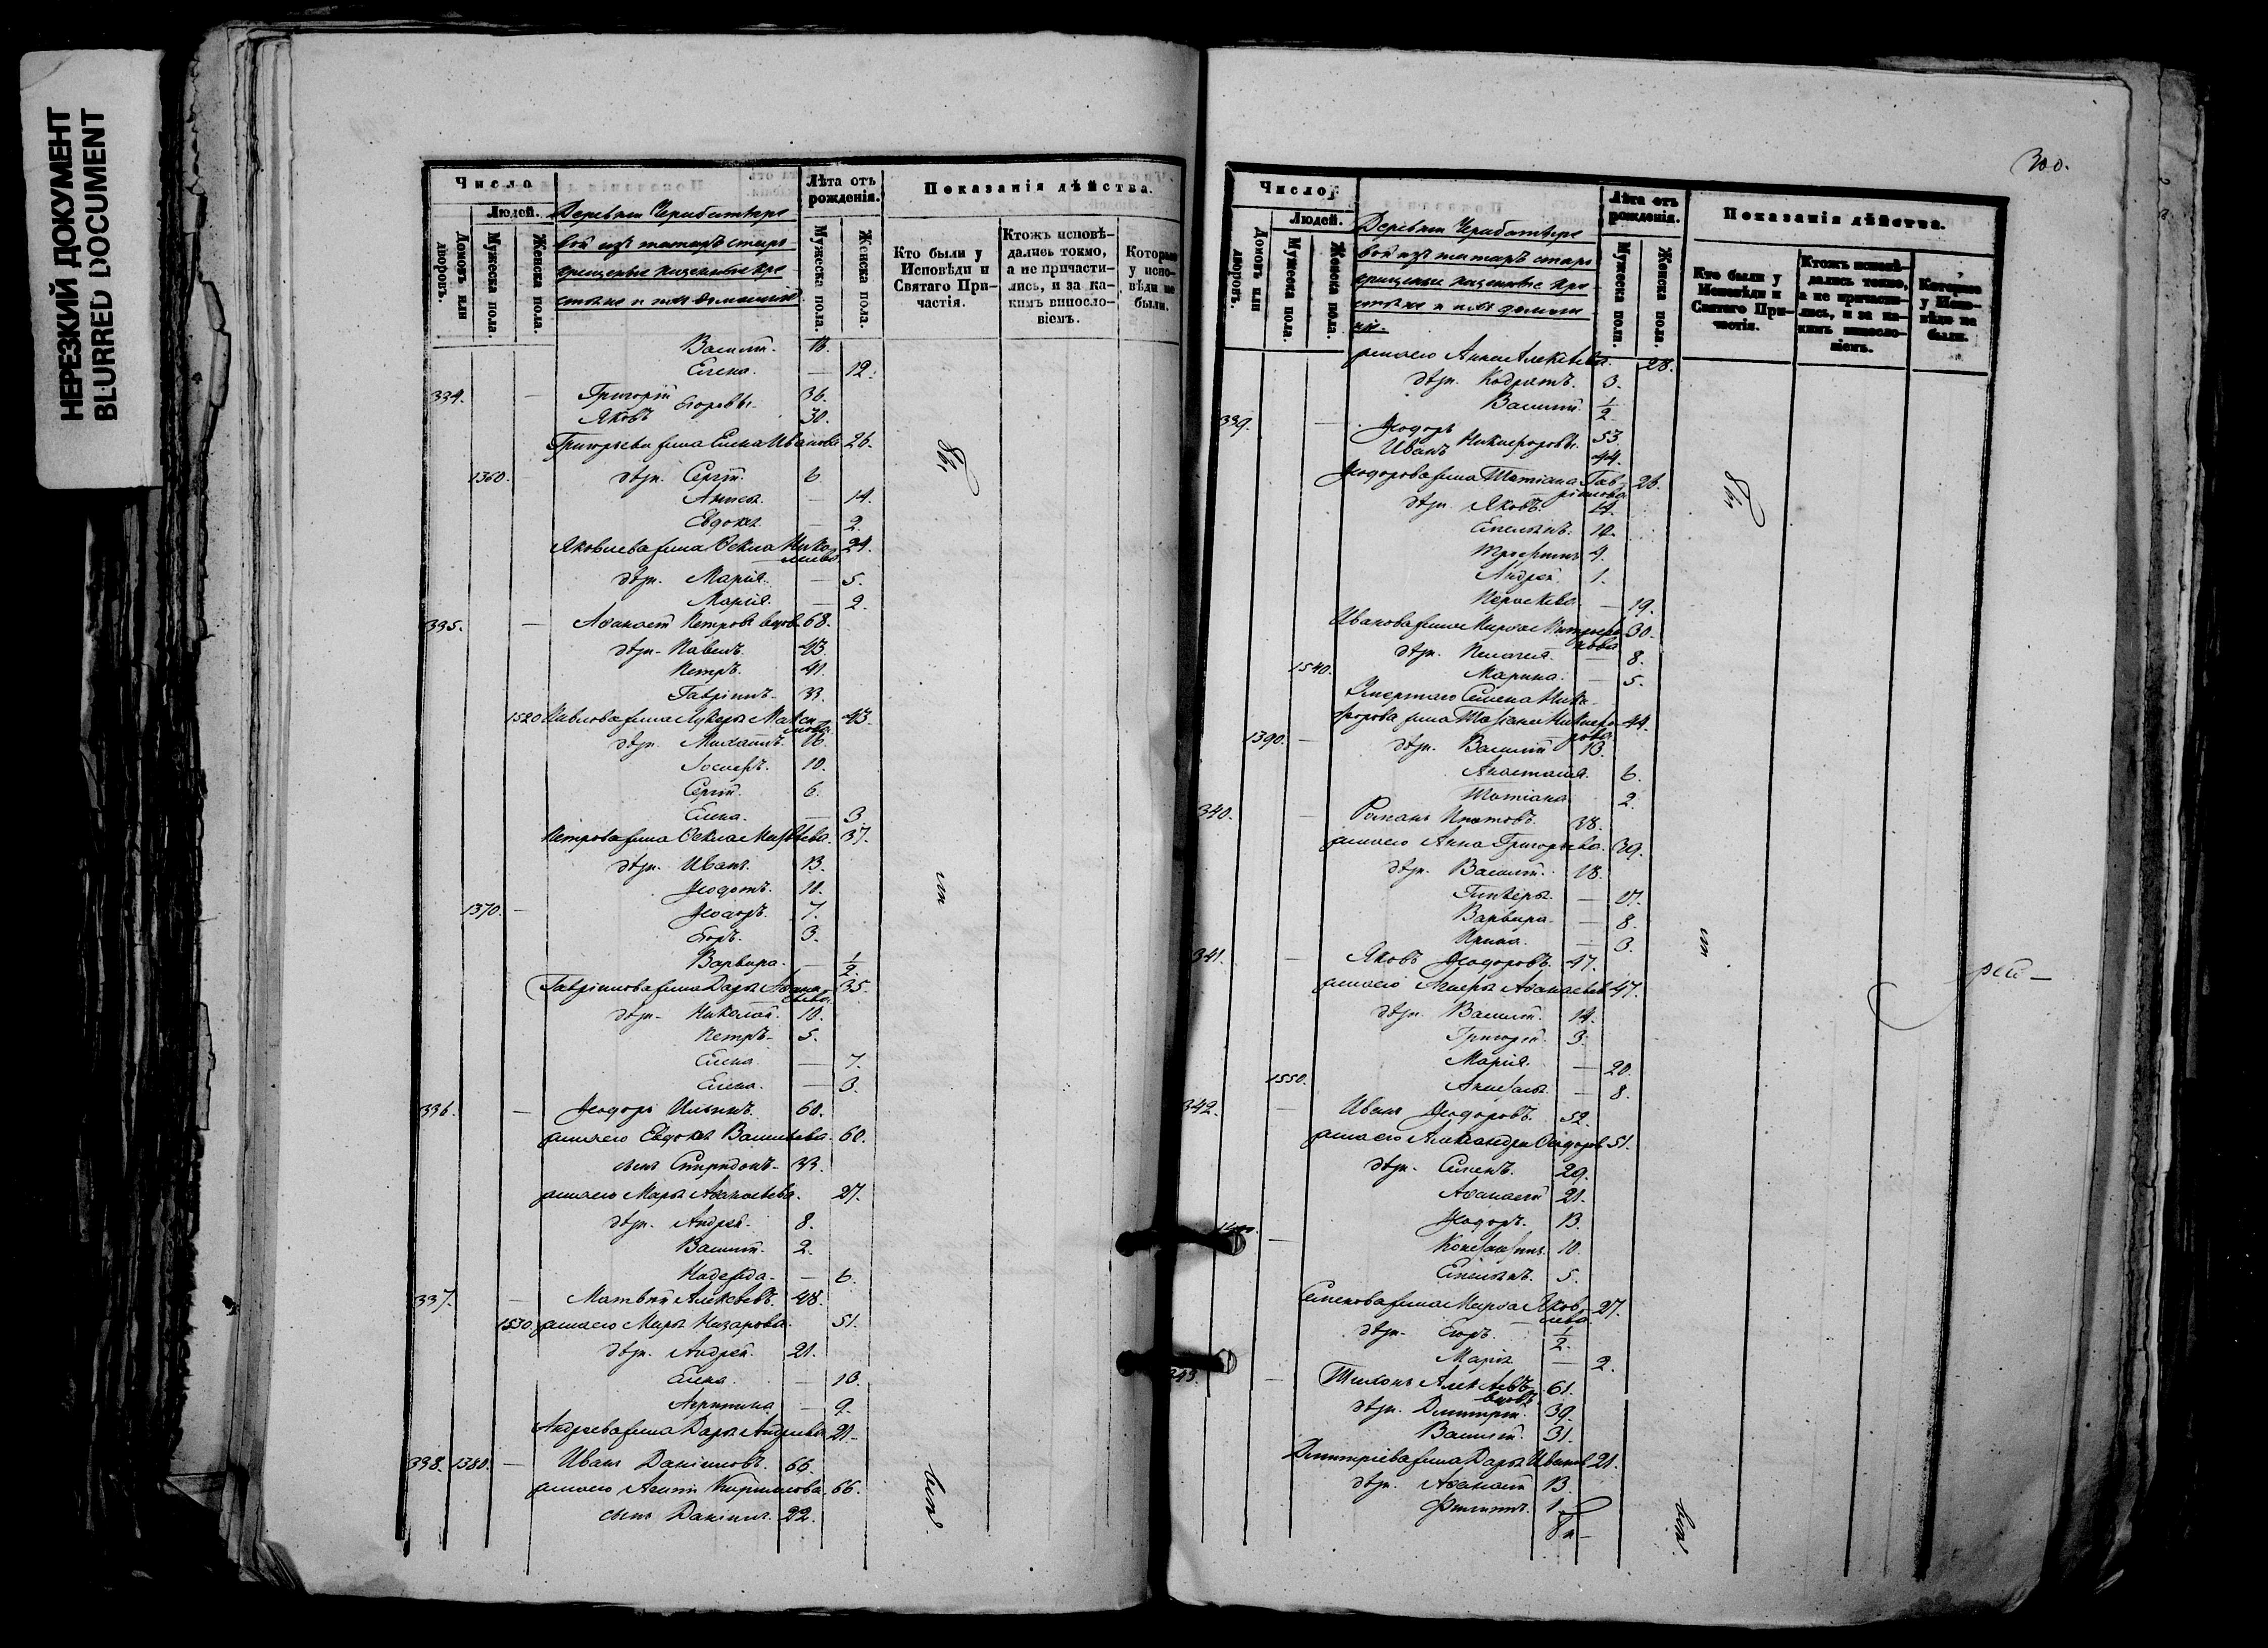 НЕРЕЗКИЙ ДОКУМЕНТ
BLURRED DOCUMENT
Число
Людей.
Домовъ или дворовъ.
Мужеска пола.
Женска пола.
Деревни
вой изъ татаръ старо
крещеные
стьяне и ихъ домашніе
Лѣта отъ рожденія.
Мужеска пола.
Женска пола.
Показанія дѣйства.
Кто были у Исповѣди и Святаго Причастія.
Ктожъ исповѣдались токмо, а не причастились, и за какимъ винословіемъ.
Которые у исповѣди не были.
Василій. 18.
Елена. — 12.
334. — Григорій Егоровы. 36.
Яковъ 30.
Григорьева жена Елена Иванова 26.
1360. дѣти. Сергій. 6
Анна. — 14.
Евдокія — 2.
Яковлева жена Ѳекла Нико 24.
лаева
дѣти. Марія. — 5.
Марія. — 2.
335. — Аѳанасій Петровъ вдов. 68.
дѣти. Павелъ. 43.
Петръ. 41.
Гавріилъ. 33.
1520 Павлова жена Лукерья Макси 43.
мова
дѣти. Михаилъ. 16.
Іосифъ. 10.
Сергій. 6.
Елена. — 3
Петрова жена Ѳекла Матвѣева. 37.
дѣти. Иванъ. 13.
Ѳедотъ. 11.
1370. — Ѳеодоръ. 7.
Егоръ. 3.
Варвара. — 1/2.
Гавріилова жена Дарья Аѳана 35.
сьева.
дѣти. Николай. 10.
Петръ. 5.
Елена — 7.
Елена. — 3.
336. — Ѳеодоръ Ильинъ. 60.
жена его Евдокія Васильева. 60.
сынъ Спиридонъ. 33.
жена его Марья Аѳанасьева. 27.
дѣти. Андрей. 8.
Василій. 2.
Надежда. — 6.
337. — Матвѣй Алексѣевъ. 48.
1530. жена его Марья Назарова. 51.
дѣти. Андрей. 21.
Елена. — 13.
Агрипина — 9.
Андреева жена Дарья Андреева 21.
338. 1380. — Иванъ Даниловъ. 66.
жена его Кирилова. 66.
сынъ Данилъ. 22.
Бы
ли
вси.
300.
Число
Людей.
Домовъ или дворовъ.
Мужеска пола.
Женска пола.
Деревни
вой изъ татаръ старо
крещеные
стьяне и ихъ домаш
ніе.
Лѣта отъ рожденія.
Мужеска пола.
Женска пола.
Показанія дѣйства.
Кто были у Исповѣди и Святаго Причастія.
Ктожъ исповѣдались токмо, а не причастились, и за какимъ винословіемъ.
Которые у Исповѣди не были.
жена его Анна Алексѣева. 28.
дѣти. Кодратъ. 3.
Василій. 1/2
339. — Ѳеодоръ Никифоровы. 53.
Иванъ 44.
Ѳеодорова жена Татіана Гав 26.
рілова
дѣти Яковъ. 14.
Емельянъ. 10.
Трофимъ 4.
Андрей. 1.
Параскева — 19.
Иванова жена Марѳа 30.
дѣти. Пелагея. — 8.
1540. Марина. — 5.
Умершаго Семена Ники
форова жена Татіана Никифо 44.
рова
1390. — дѣти. Василій 13.
Анастасія. 6.
Татіана 2.
340. — Романъ Ипатовъ. 38.
жена его Анна Григорьева. 39.
дѣти. Василій. 18.
Гликерья. — 17.
Варвара. — 8.
Ирина. — 3.
341. — Яковъ Ѳеодоровъ. 47.
жена его Аѳанасьева 47.
дѣти. Василій. 14.
Григорій. 3.
Марія. — 20.
1550. — 8.
342. — Иванъ Ѳеодоровъ. 52.
жена его Александра Ѳеодоров 51.
дѣти. Семенъ. 29.
Аѳанасій 21.
Ѳеодоръ. 13.
Константинъ. 10.
Емельянъ. 5.
Семенова жена Марѳа Яков 27.
лева
дѣти. Егоръ. 1/2.
Марія — 2.
343. — Тихонъ Алексѣевъ 61.
вдовъ
дѣти. Дмитрій. 39.
Василій. 31.
Дмитріева жена Дарья Иванов 21.
дѣти. Аѳанасій 13.
Филиппъ. 1
Бы
ли
вси.
рей —